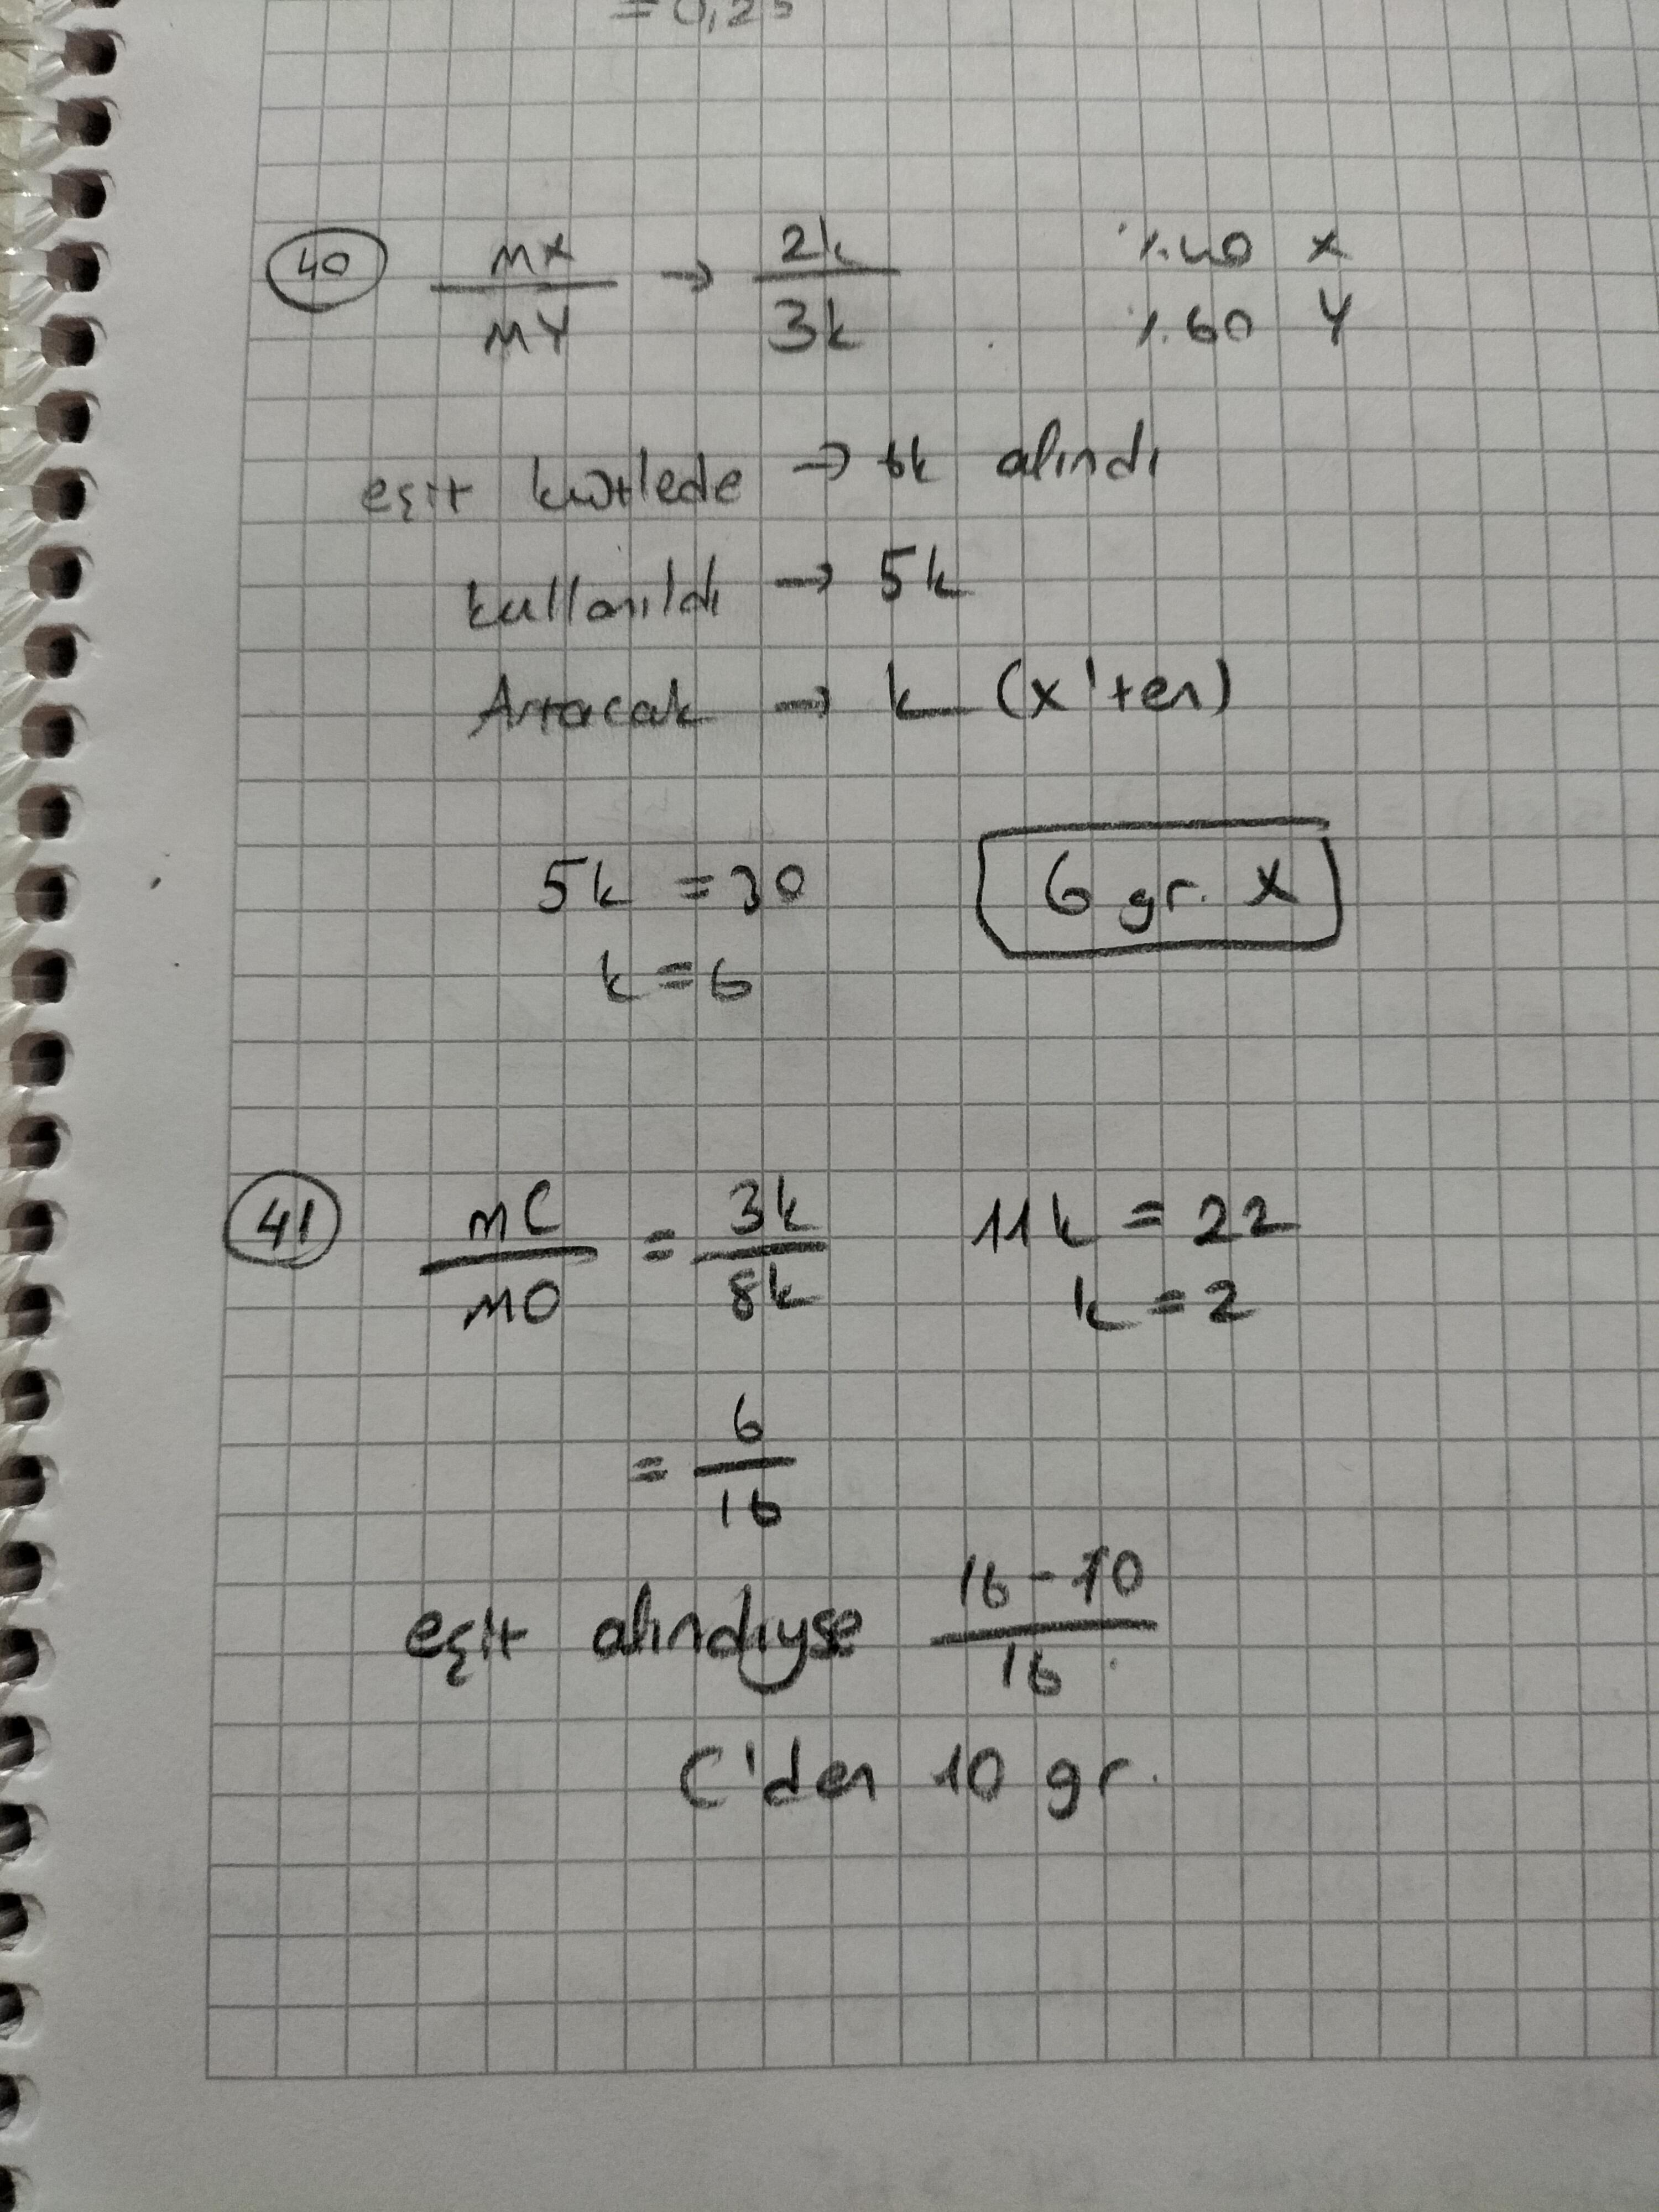 = 0,25
40 mX / mY → 2k / 3k %40 X %60 Y
eşit kütlede → 6k alındı
kullanıldı → 5k
Artacak → k (x'ten)
5k = 30
k = 6
6 gr. X
41 mC / mO = 3k / 8k 11k = 22
k = 2
= 6 / 16
eşit alındıysa 16-10 / 16
C'den 10 gr.